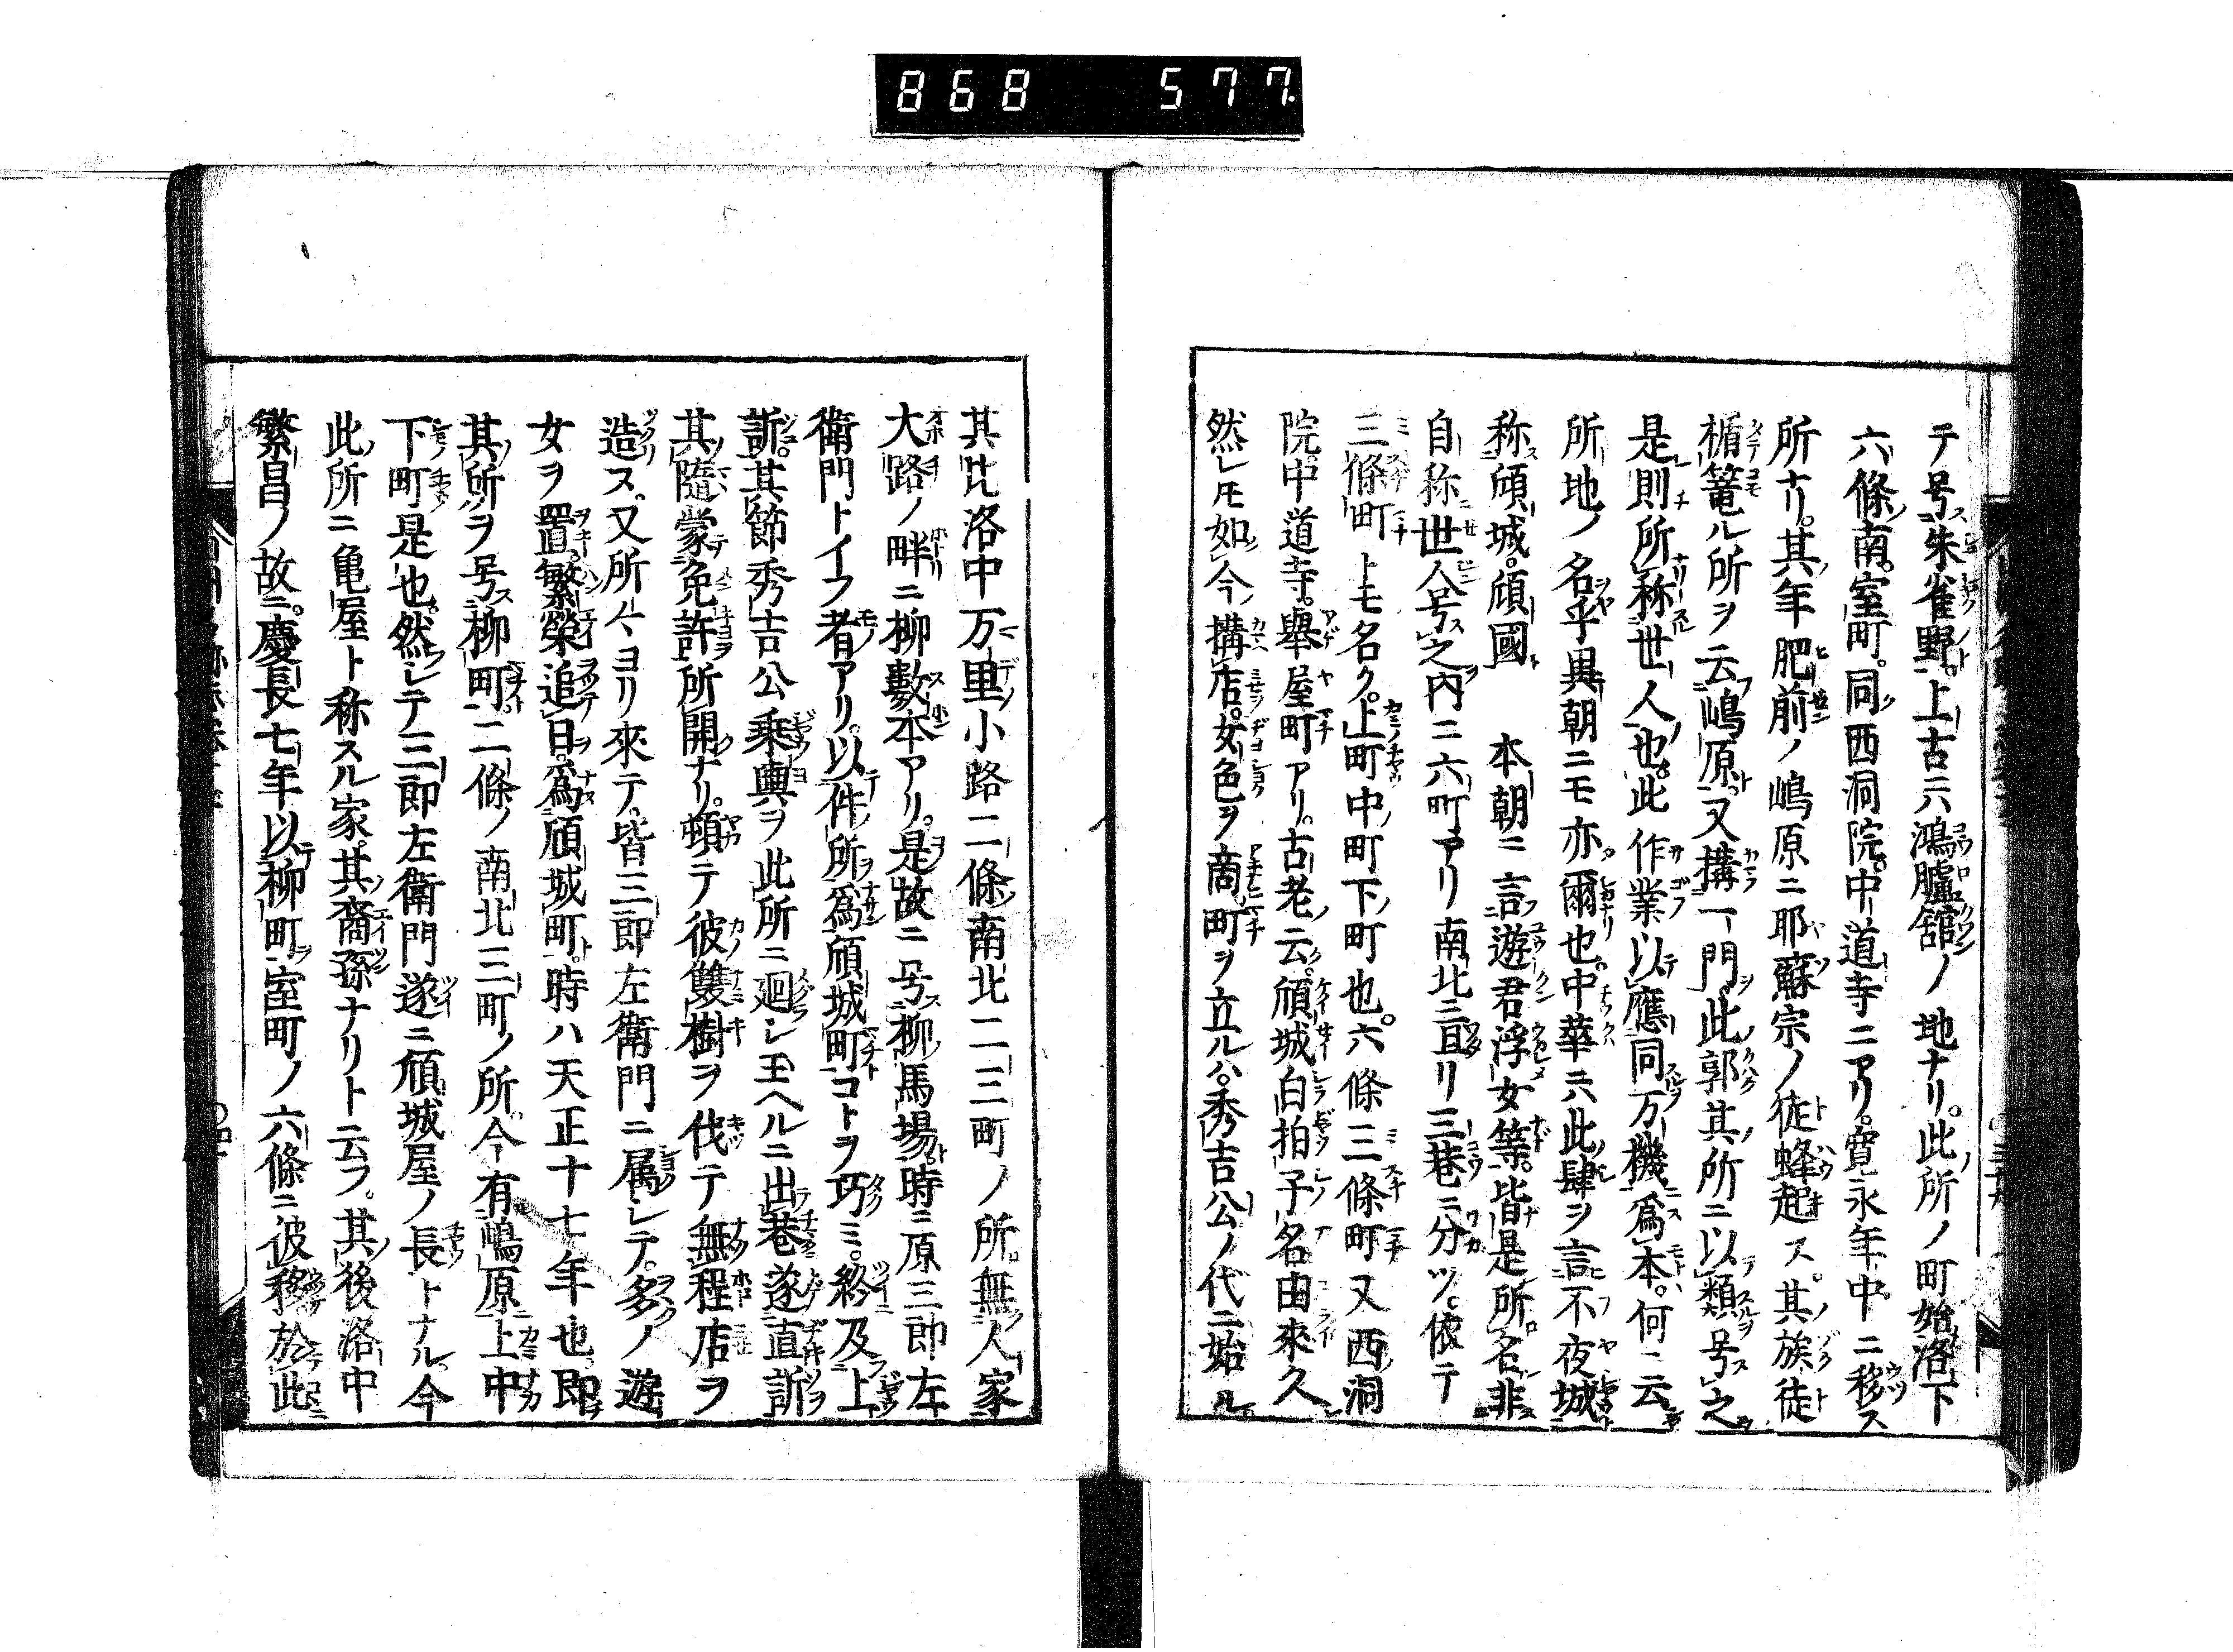 868 577
テ号朱雀野。上古ニハ鴻臚舘ノ地ナリ。此所ノ町始洛下
六條南。室町。同西洞院。中道寺ニアリ。寛永年中ニ移ス
所ナリ。其年肥前ノ嶋原ニ耶蘇宗ノ徒蜂起ス。其族徒
楯篭ル所ヲ云嶋原。又搆一門。此郭其所ニ以類号之
是則所称世人也。此作業以應同万機爲本。何ニ云
所地ノ名乎異朝ニモ亦爾也。中華ニハ此肆ヲ言不夜城
称頃城。頃國 本朝ニ言遊君浮女等。皆是所名非
自称世人号之内ニ六町アリ南北三亘リ三巷ニ分ツ。依テ
三條町トモ名ク。上町中町下ノ町也。六條三條町又西洞
院。中道寺。舉屋町アリ。古老ノ云。頃城白拍子名由來久
然レモ如今搆店。女色ヲ商町ヲ立ルハ。秀吉公ノ代ニ始ル
其比洛中万里小路二條南北二三町ノ所。無人家
大路ノ畔ニ柳數本アリ。是故ニ号柳馬場。時ニ原三郎左
衛門トイフ者アリ。以件所爲頃城町コトヲ巧ミ。終及上
訴。其節秀吉公乗輿ヲ此所ニ廻シ玉ヘルニ出巷遂直訴
其隨蒙免許所開ナリ。頓ニテ彼雙樹ヲ伐テ無程店ヲ
造ス。又所々ヨリ來テ。皆三郎左衛門ニ属シテ。多ノ遊
女ヲ置。繁榮追日。爲頃城町。時ハ天正十七年也。即
其所ヲ号柳町。二條ノ南北三町ノ所。今有嶋原上中
下町是也。然シテ三郎左衛門遂ニ頃城屋ノ長トナル。今
此所ニ亀屋ト称スル家。其裔孫ナリト云フ。其後洛中
繁昌ノ故ニ。慶長七年以柳町室町ノ六條ニ彼移於此